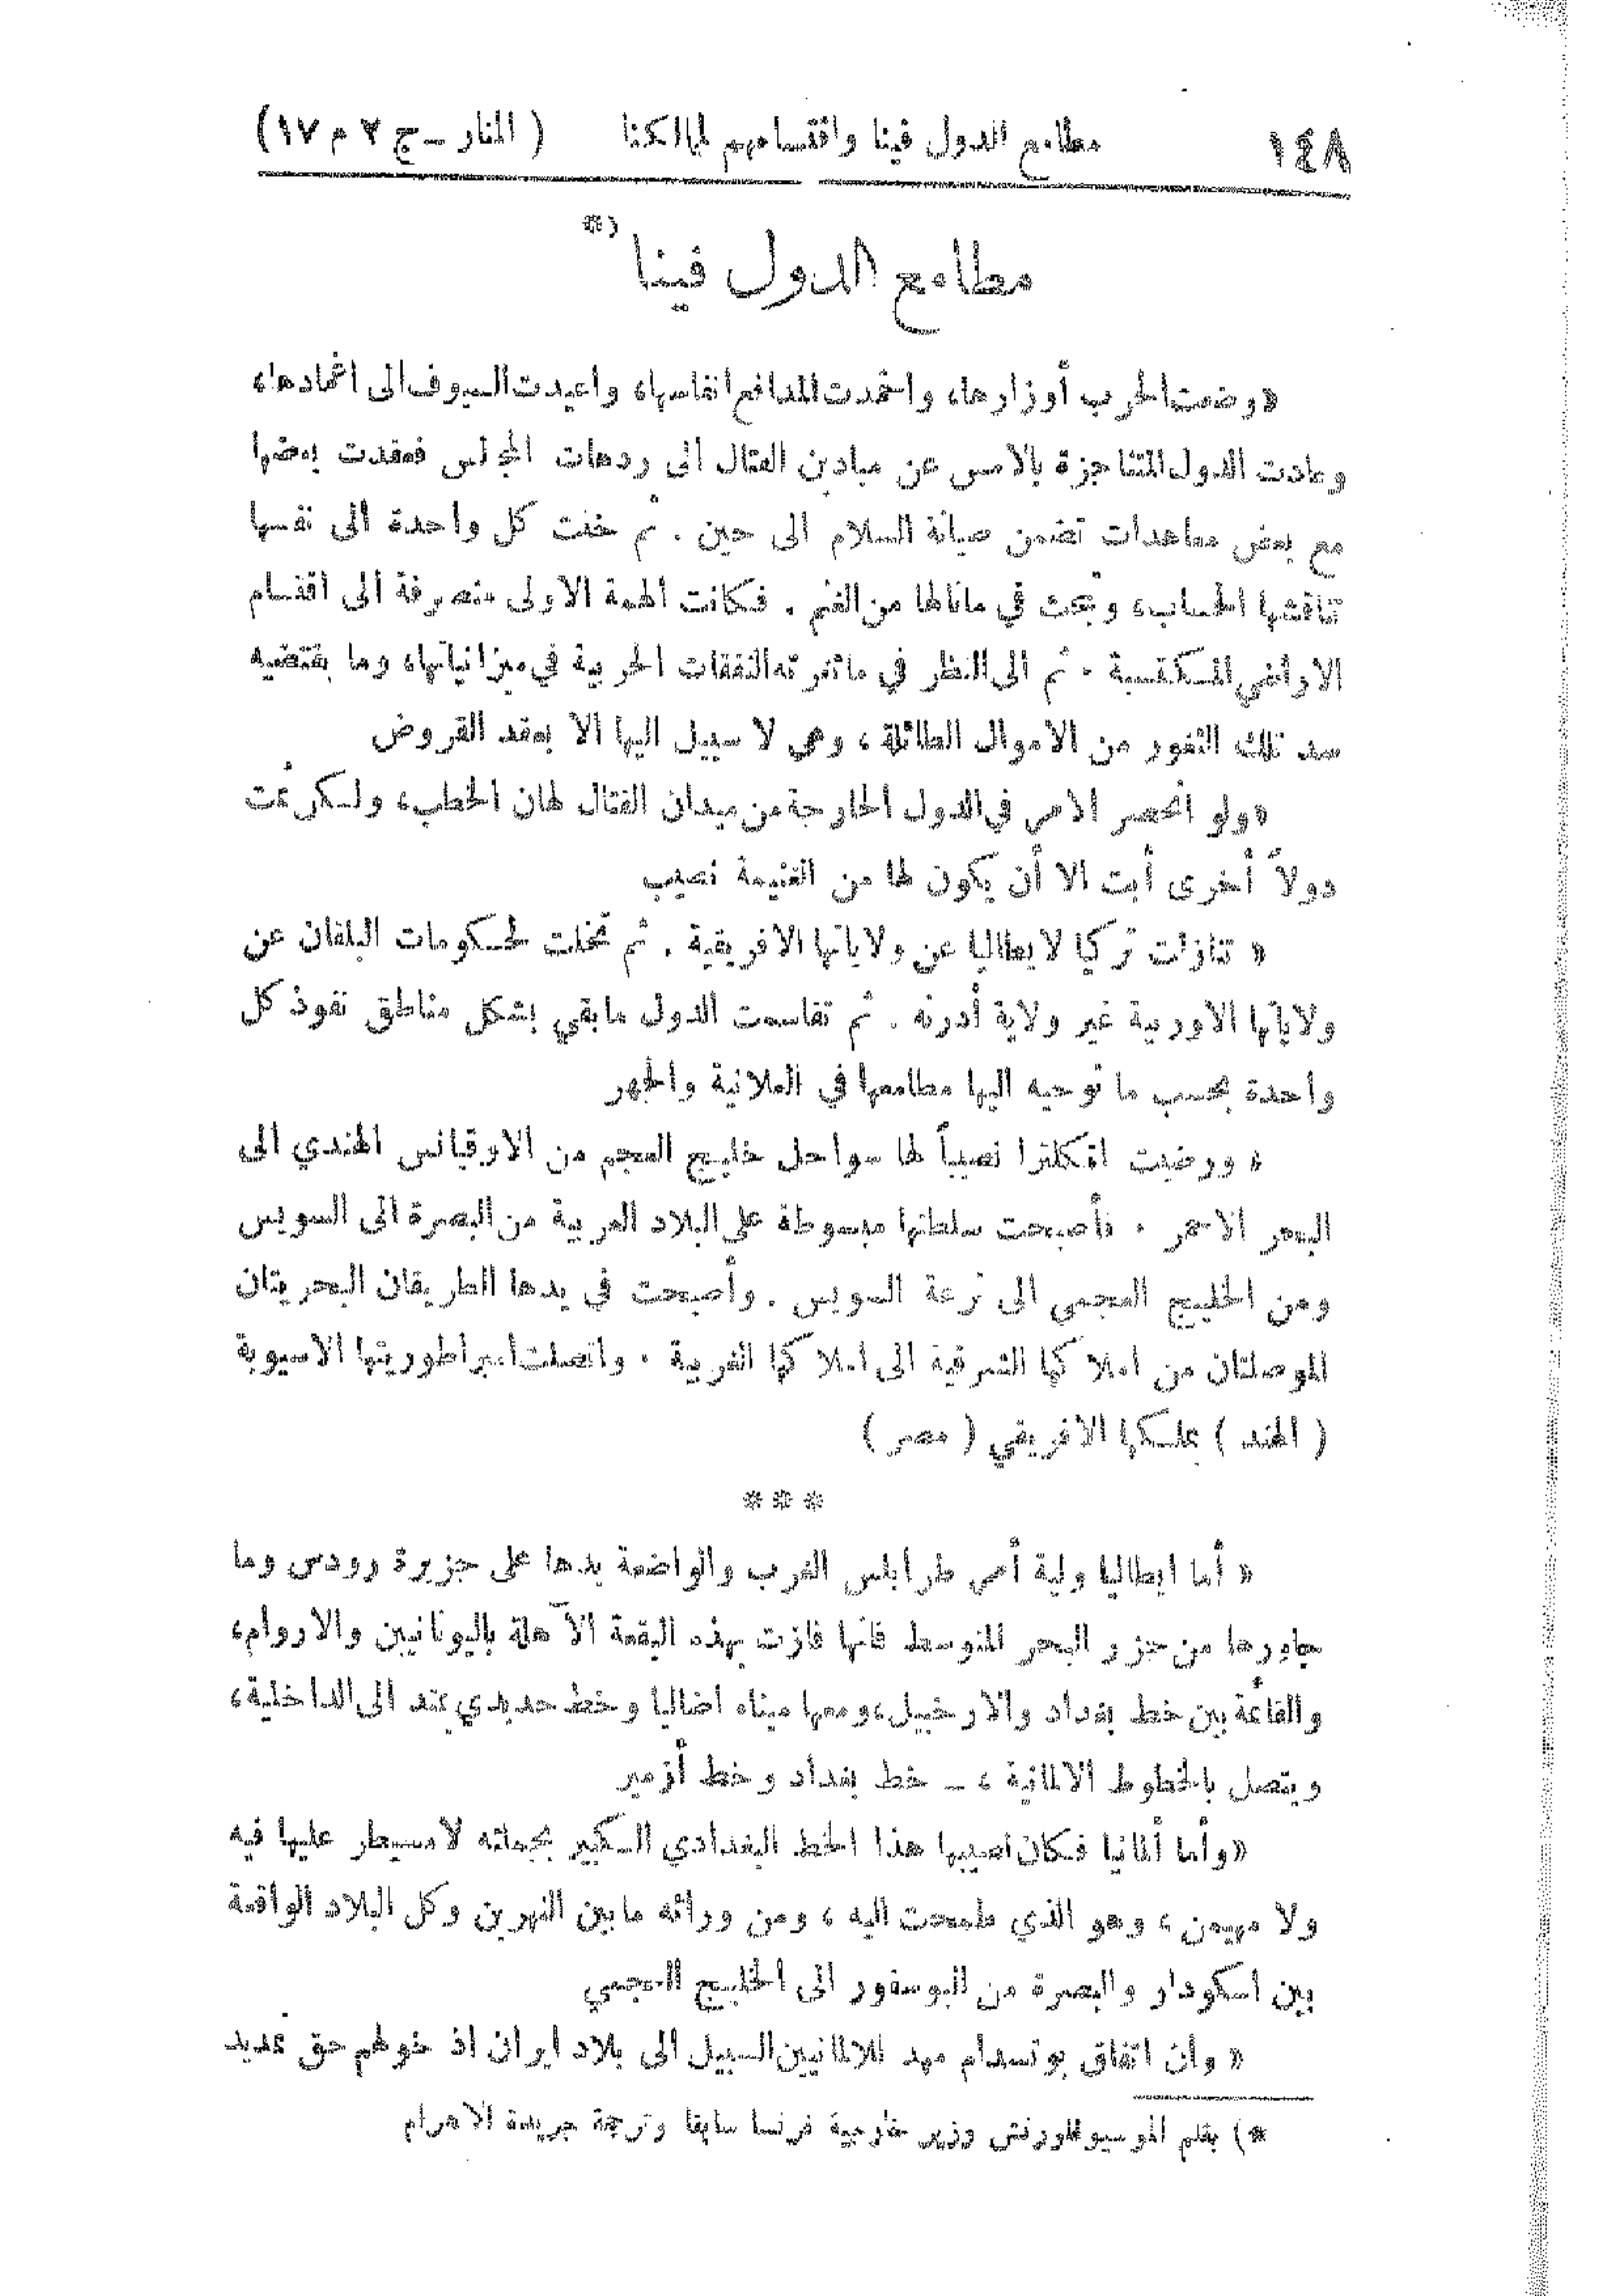 ١٤٨ مطامع الدول فينا واقتسامهم لممالكنا ( المنار – ج ٢ م ١٧ )
مطامع الدول فينا *)
« وضعت الحرب أوزارها، واخمدت المدافع انفاسها، واعيدت السيوف الى اغمادها،
وعادت الدول المتناجزة بالامس عن ميادين القتال الى ردهات المجالس فعقدت بعضها
مع بعض معاهدات تضمن صيانة السلام الى حين . ثم خلت كل واحدة الى نفسها
تناقشها الحساب، وتبحث في مانالها من الغنم . فكانت الهمة الاولى منصرفة الى اقتسام
الاراضي المكتسبة . ثم الى النظر في ماثغرته النفقات الحربية في ميزانياتها، وما يقتضيه
سد تلك الثغور من الاموال الطائلة ، وهي لا سبيل اليها الا بعقد القروض
« ولو انحصر الامر في الدول الخارجة من ميدان القتال لهان الخطب، ولكن ثمت
دولاً أخرى أبت الا أن يكون لها من الغنيمة نصيب
« تنازلت تركيا لايطاليا عن ولاياتها الافريقية . ثم تخلت لحكومات البلقان عن
ولاياتها الاوربية غير ولاية أدرنه . ثم تقاسمت الدول مابقي بشكل مناطق نفوذ كل
واحدة بحسب ما توحيه اليها مطامعها في العلانية والجهر
« ورضيت انكلترا نصيباً لها سواحل خليج العجم من الاوقيانس الهندي الى
البحر الاحمر . فأصبحت سلطتها مبسوطة على البلاد العربية من البصرة الى السويس
ومن الخليج العجمي الى ترعة السويس . وأصبحت في يدها الطريقان البحريتان
الموصلتان من املاكها الشرقية الى املاكها الغربية . واتصلت امبراطوريتها الاسيوية
( الهند ) بملكها الافريقي ( مصر )
* * *
« أما ايطاليا ولية أمر طرابلس الغرب والواضعة يدها على جزيرة رودس وما
جاورها من جزر البحر المتوسط فانها فازت بهذه البقعة الآهلة باليونانيين والاروام،
والقائمة بين خط بغداد والارخبيل، ومعها ميناء اضاليا وخط حديدي يمتد الى الداخلية،
ويتصل بالخطوط الالمانية ، ــ خط بغداد وخط أزمير
« وأما ألمانيا فكان نصيبها هذا الخط البغدادي الكبير بجملته لا مسيطر عليها فيه
ولا مهيمن ، وهو الذي طمحت اليه ، ومن ورائه مابين النهرين وكل البلاد الواقعة
بين اسكودار والبصرة من البوسفور الى الخليج العجمي
« وان اتفاق بوتسدام مهد للالمانيين السبيل الى بلاد ايران اذ خولهم حق تمديد
*) بقلم الموسيو فلورنش وزير خارجية فرنسا سابقا وترجمة جريدة الاهرام